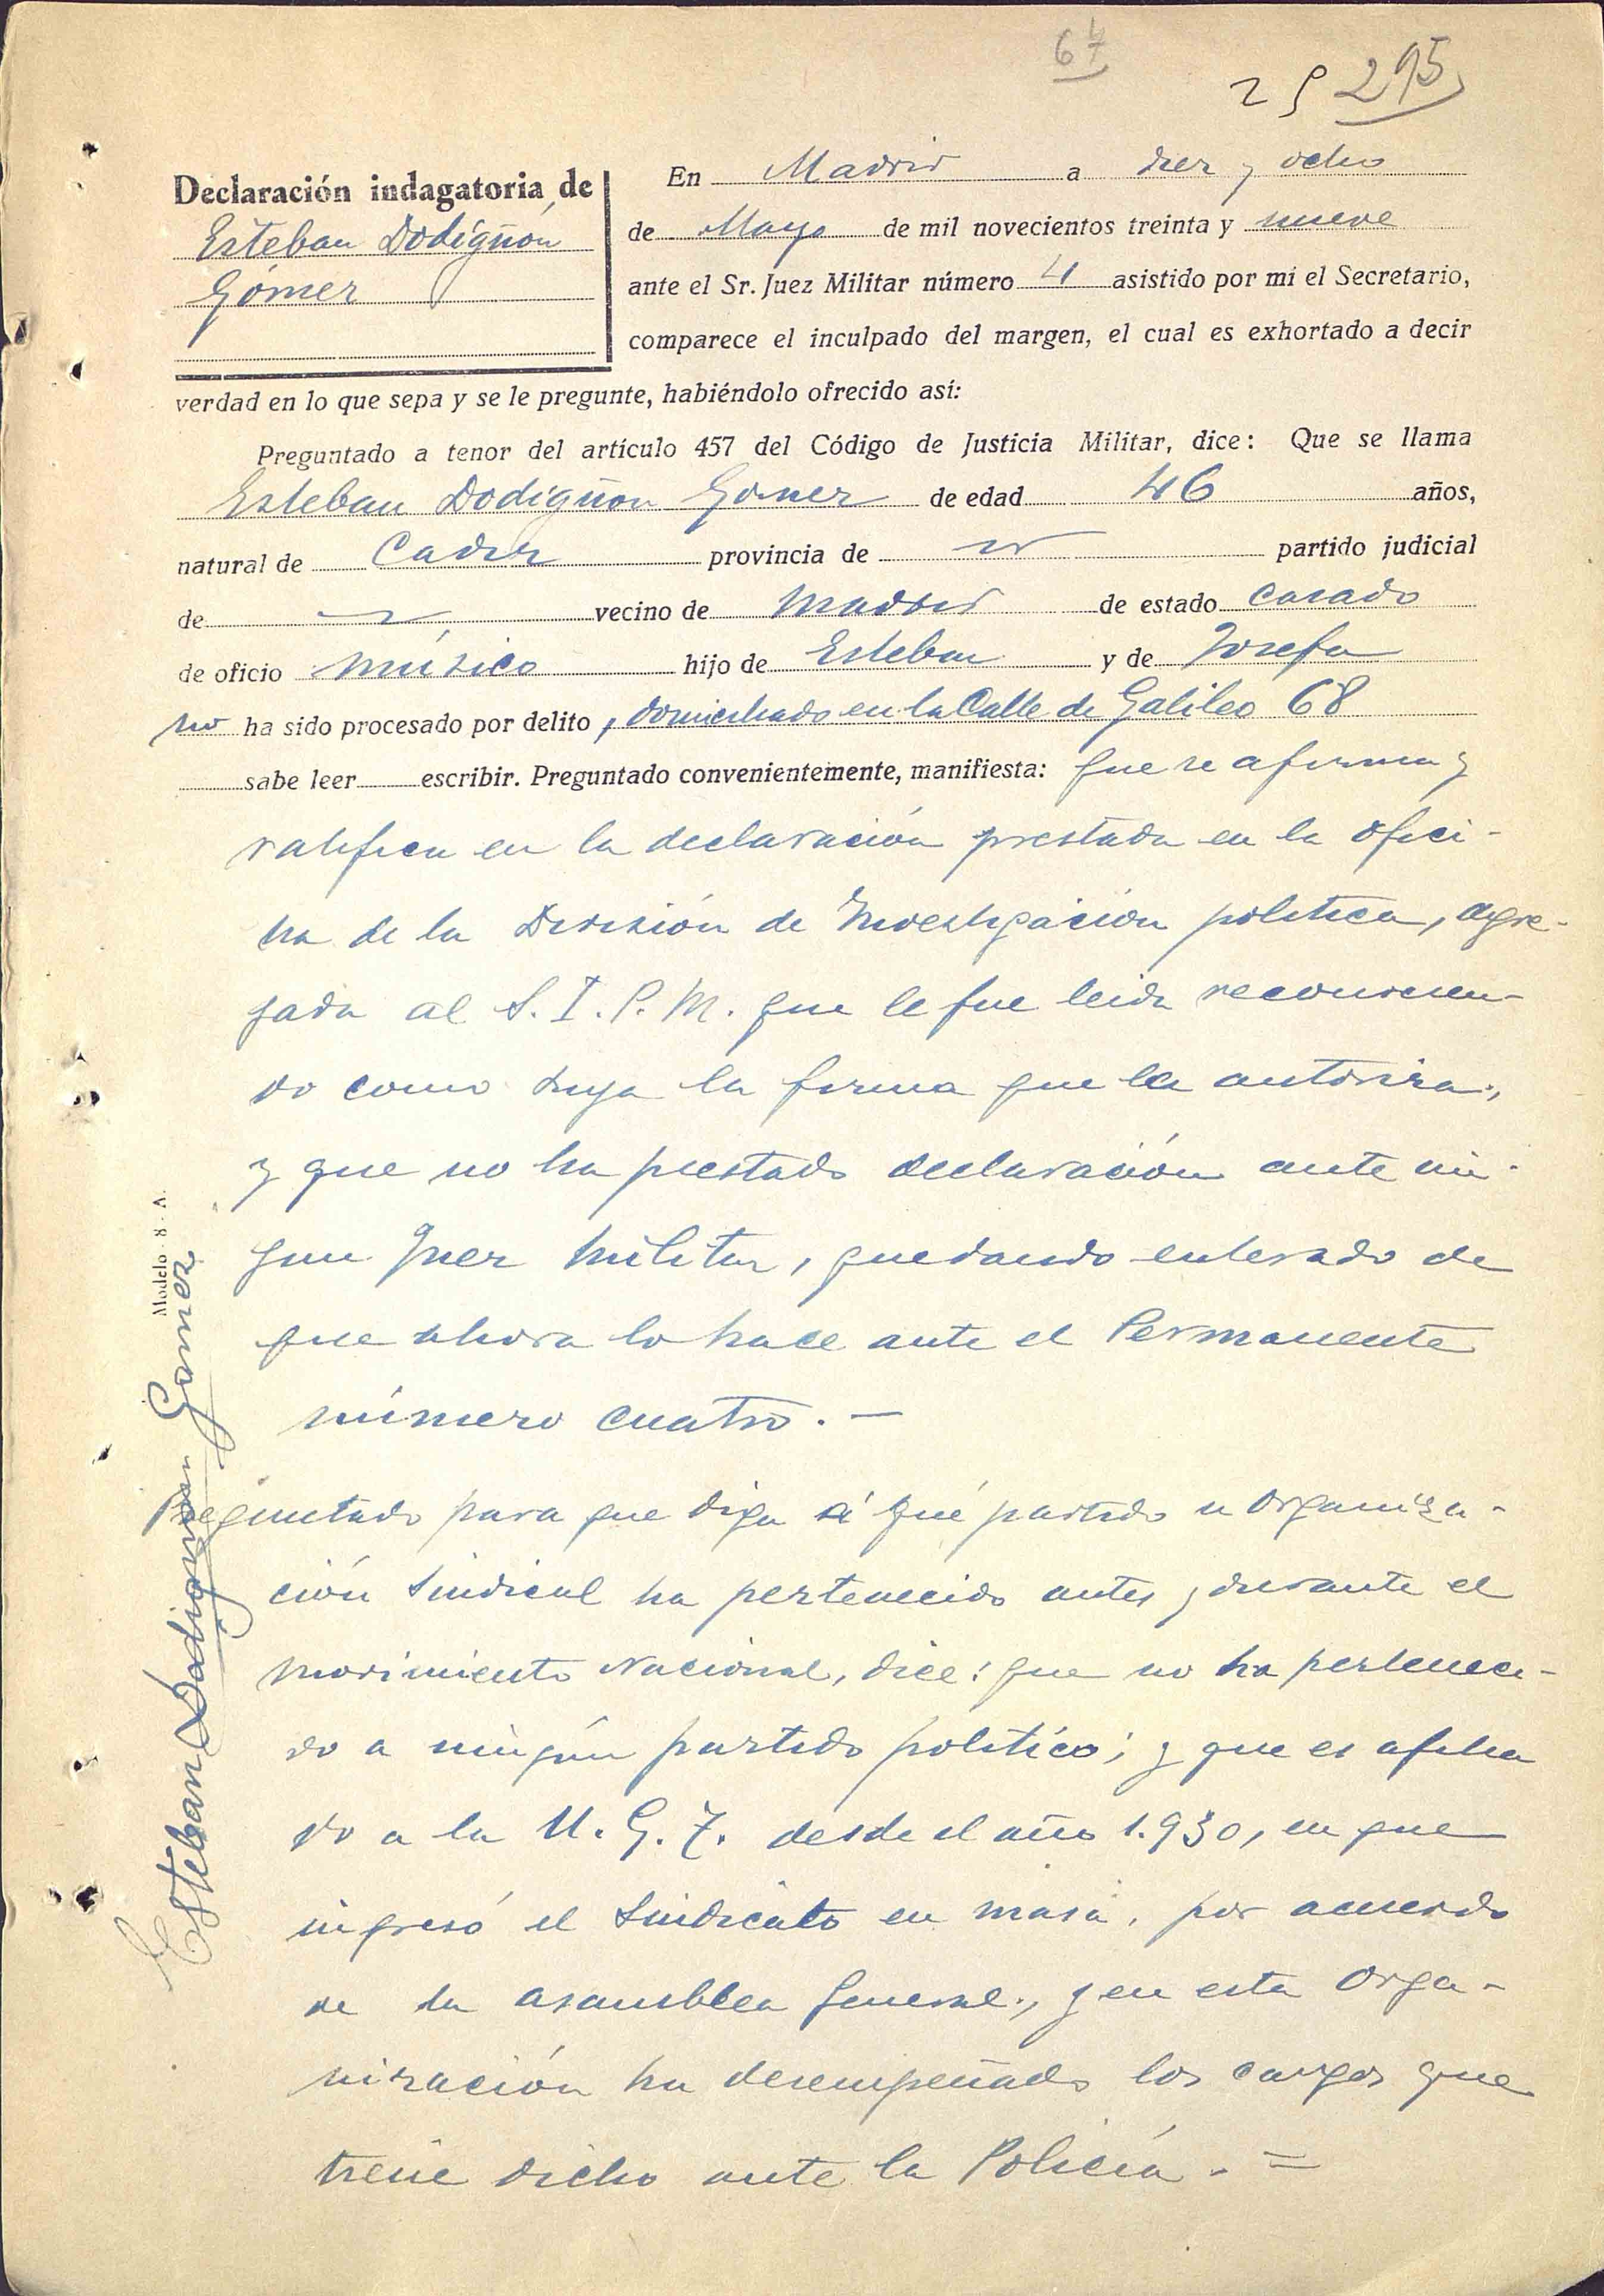 64
25 295
Declaración indagatoria de
Esteban Dodignón
Gómez
En Madrid a diez y ocho
de Mayo de mil novecientos treinta y nueve
ante el Sr. Juez Militar número 4 asistido por mi el Secretario,
comparece el inculpado del margen, el cual es exhortado a decir
verdad en lo que sepa y se le pregunte, habiéndolo ofrecido así:
Preguntado a tenor del artículo 457 del Código de Justicia Militar, dice: Que se llama
Esteban Dodignon Gomez de edad 46 años,
natural de Cadiz provincia de partido judicial
de vecino de Madrid de estado casado
de oficio músico hijo de Esteban y de Josefa
no ha sido procesado por delito, domiciliado en la Calle de Galileo 68
sabe leer escribir. Preguntado convenientemente, manifiesta: que se afirma y
ratifica en la declaración prestada en la ofici-
na de la División de Investigación politica, agre-
gada al S.I.P.M. que le fue leida reconocien-
do como suya la firma que la autoriza,
y que no ha prestado declaración ante nin-
gun Juez Militar, quedando enterado de
que ahora lo hace ante el Permanente
número cuatro.-
Preguntado para que diga a qué partido u organiza-
ción Sindical ha pertenecido antes y durante el
Movimiento Nacional, dice: que no ha perteneci-
do a ningún partido político; y que es afilia
do a la U.G.T. desde el año 1.930, en que
ingresó el Sindicato en masa, por acuerdo
de la asamblea general, y en esta Orga-
nización ha desempeñado los cargos que
tiene dicho ante la Policía.=
Modelo 8 - A.
Esteban Dodignon Gomez